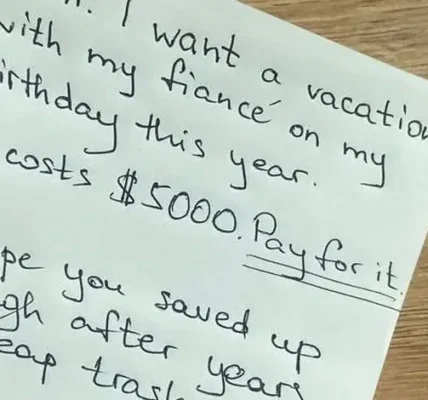 I want a vacation
with my fiancé on my
birthday this year.
costs $5000. Pay for it.
you saved up
after years